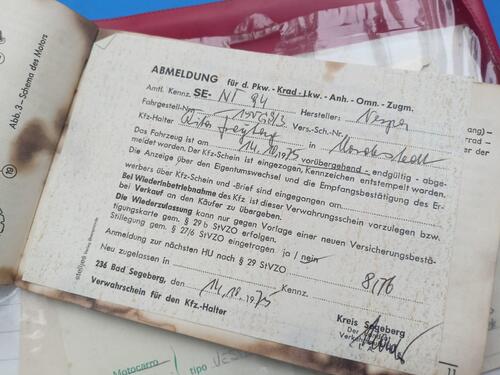 Abb. 3 – Schema des Motors
ABMELDUNG für d. Pkw. - Krad - Lkw. - Anh. - Omn. - Zugm.
Amtl. Kennz. SE- NT 94 Hersteller: Vespa
Fahrgestell-Nr. Vers.-Sch.-Nr.
Kfz-Halter in
Das Fahrzeug ist am 14.10.1975 vorübergehend - endgültig - abge-
meldet worden. Der Kfz-Schein ist eingezogen, Kennzeichen entstempelt worden.
Die Anzeige über den Eigentumswechsel und die Empfangsbestätigung des Er-
werbers über Kfz-Schein und -Brief sind eingegangen am
Bei Wiederinbetriebnahme des Kfz. ist dieser Verwahrungsschein vorzulegen bzw.
bei Verkauf an den Käufer zu übergeben.
Die Wiederzulassung kann nur gegen Vorlage einer neuen Versicherungsbestä-
tigungskarte gem. § 29 b StVZO erfolgen.
Stillegung gem. § 27/6 StVZO eingetragen ja / nein
Anmeldung zur nächsten HU nach § 29 StVZO 8/76
Neu zugelassen in Kennz.
236 Bad Segeberg, den 14.10.1975
Verwahrschein für den Kfz.-Halter
Kreis Segeberg
Der
11
Motocarro
tipo